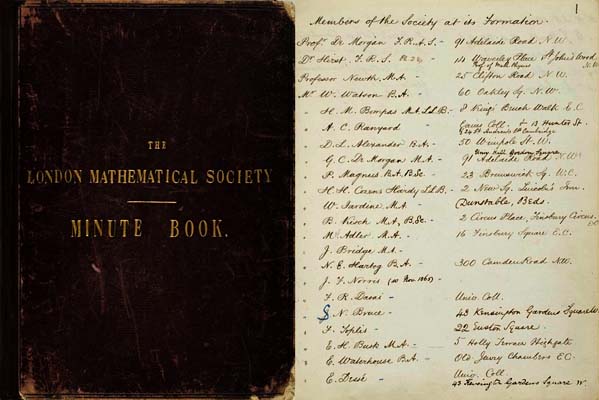 THE
LONDON MATHEMATICAL SOCIETY
MINUTE BOOK.
1
Members of the Society at its Formation.
Profr. De Morgan F.R.A.S. - 91 Adelaide Road N.W.
Dr Hirst, F.R.S. 14 Waverley Place St John's Wood N.W.
Prof. of Math. Physics
Professor Newth, M.A. - 25 Clifton Road N.W.
Mr W. Watson B.A. - 60 Oakley Sq. N.W.
" H. M. Bompas M.A. LL.B. - 8 King's Bench Walk E.C.
" A. C. Ranyard Caius Coll. & 13 Hunter St.
24 St Andrews St Cambridge
" D. L. Alexander B.A. - 50 Wimpole St. W.
Univ. Hall Gordon Square
" G. C. De Morgan M.A. - 91 Adelaide Road N.W.
" P. Magnus B.A. B.Sc. - 23 Brunswick Sq. W.C.
" H. H. Cozens Hardy LL.B. - 2 New Sq. Lincoln's Inn.
" W. Jardine M.A. Dunstable, Beds.
" B. Kisch M.A., B.Sc. - 2 Circus Place, Finsbury Circus. E.C.
" M. Adler M.A. - 16 Finsbury Square E.C.
" J. Bridge M.A. -
" N. E. Hartog B.A. - 300 Camden Road N.W.
" J. F. Norris (as Nov. 1865) -
" F. R. Desai - Univ. Coll.
" S. N. Bruce - 43 Kensington Gardens Square W.
" F. Toplis - 22 Euston Square.
" E. H. Busk M.A. - 5 Holly Terrace Highgate
" E. Waterhouse B.A. - Old Jewry Chambers E.C.
" E. Univ. Coll.
43 Kensington Gardens Square W.